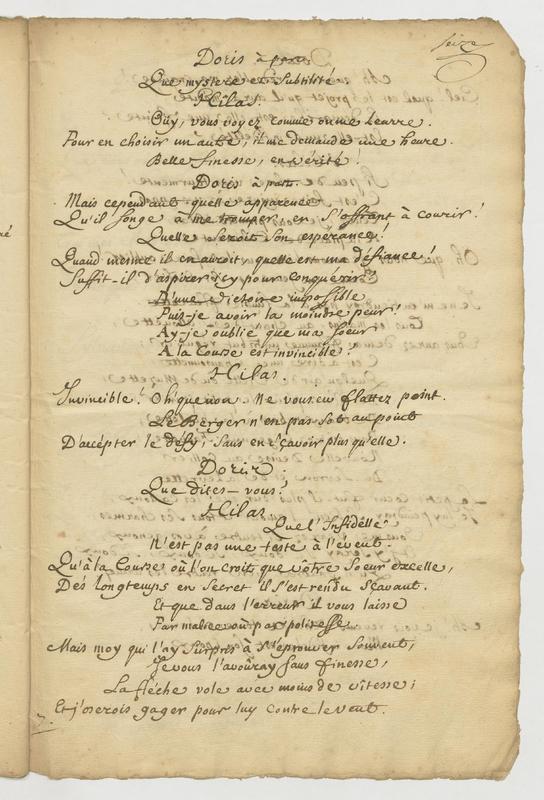 seize
Doris à part.
Que mystere et Subtilité.
Hilas.
Oüy, vous voyez comme on me Leurre.
Pour en choisir un autre, il me demande une heure.
Belle finesse, en vérité!
Doris à part.
Mais cependant quelle apparence
Qu'il songe à me tromper en s'offrant à courir!
Quelle Seroit Son esperance!
Quand mesme il en auroit quelle est ma défiance!
Suffit-il d'aspirer icy pour conquérir?
D'une Victoire impossible
Puis-je avoir la moindre peur!
Ay-je oublié que ma Soeur
A la Course est invincible.
Hilas.
Invincible! Oh que non. Ne vous en flattez point.
Le Berger n'en pas Sot au point
D'accepter le défy, Sans en sçavoir plus qu'elle.
Doris.
Que dites-vous?
Hilas
Que l'Infidelle
N'est pas une teste à l'évent.
Qu'à la Course où l'on croit que vôtre Soeur excelle,
Dés longtemps en Secret il s'est rendu Sçavant.
Et que dans l'erreur il vous laisse
Par malice ou par politesse
Mais moy qui l'ay Surpris à s'éprouver Souvent,
Je vous l'avoüray Sans finesse,
La fléche vole avec moins de vîtesse;
Et j'oserois gager pour luy contre le vent.